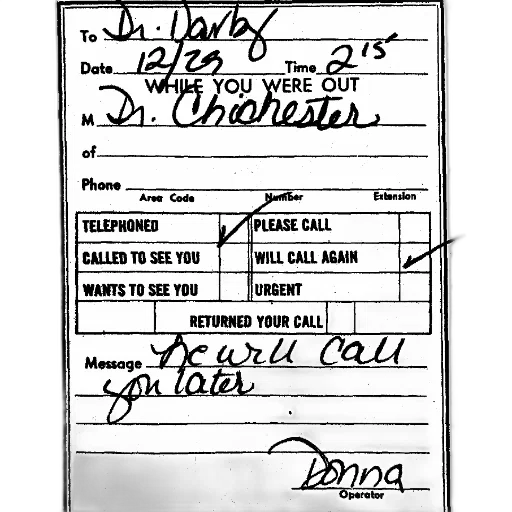 To Dr. Darby
Date 12/29 Time 2 15
WHILE YOU WERE OUT
M Dr. Chichester
of
Phone
Area Code Number Extension
TELEPHONED PLEASE CALL
CALLED TO SEE YOU WILL CALL AGAIN
WANTS TO SEE YOU URGENT
RETURNED YOUR CALL
Message he will call
you later
Donna
Operator